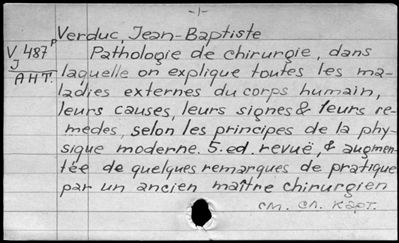 -1-
Verduc, Jean-Baptiste
V 487 P
J
АНТ.
Pathologie de chirurgie, dans
laquelle on explique toutes les ma-
ladies externes du corps humain,
leurs causes, leurs signes & leurs re-
medes, selon les principes de la phy-
sique moderne. 5. ed. revuë, & augmen-
tée de quelques remarques de pratique
par un ancien maître chirurgien
см. сл. карт.